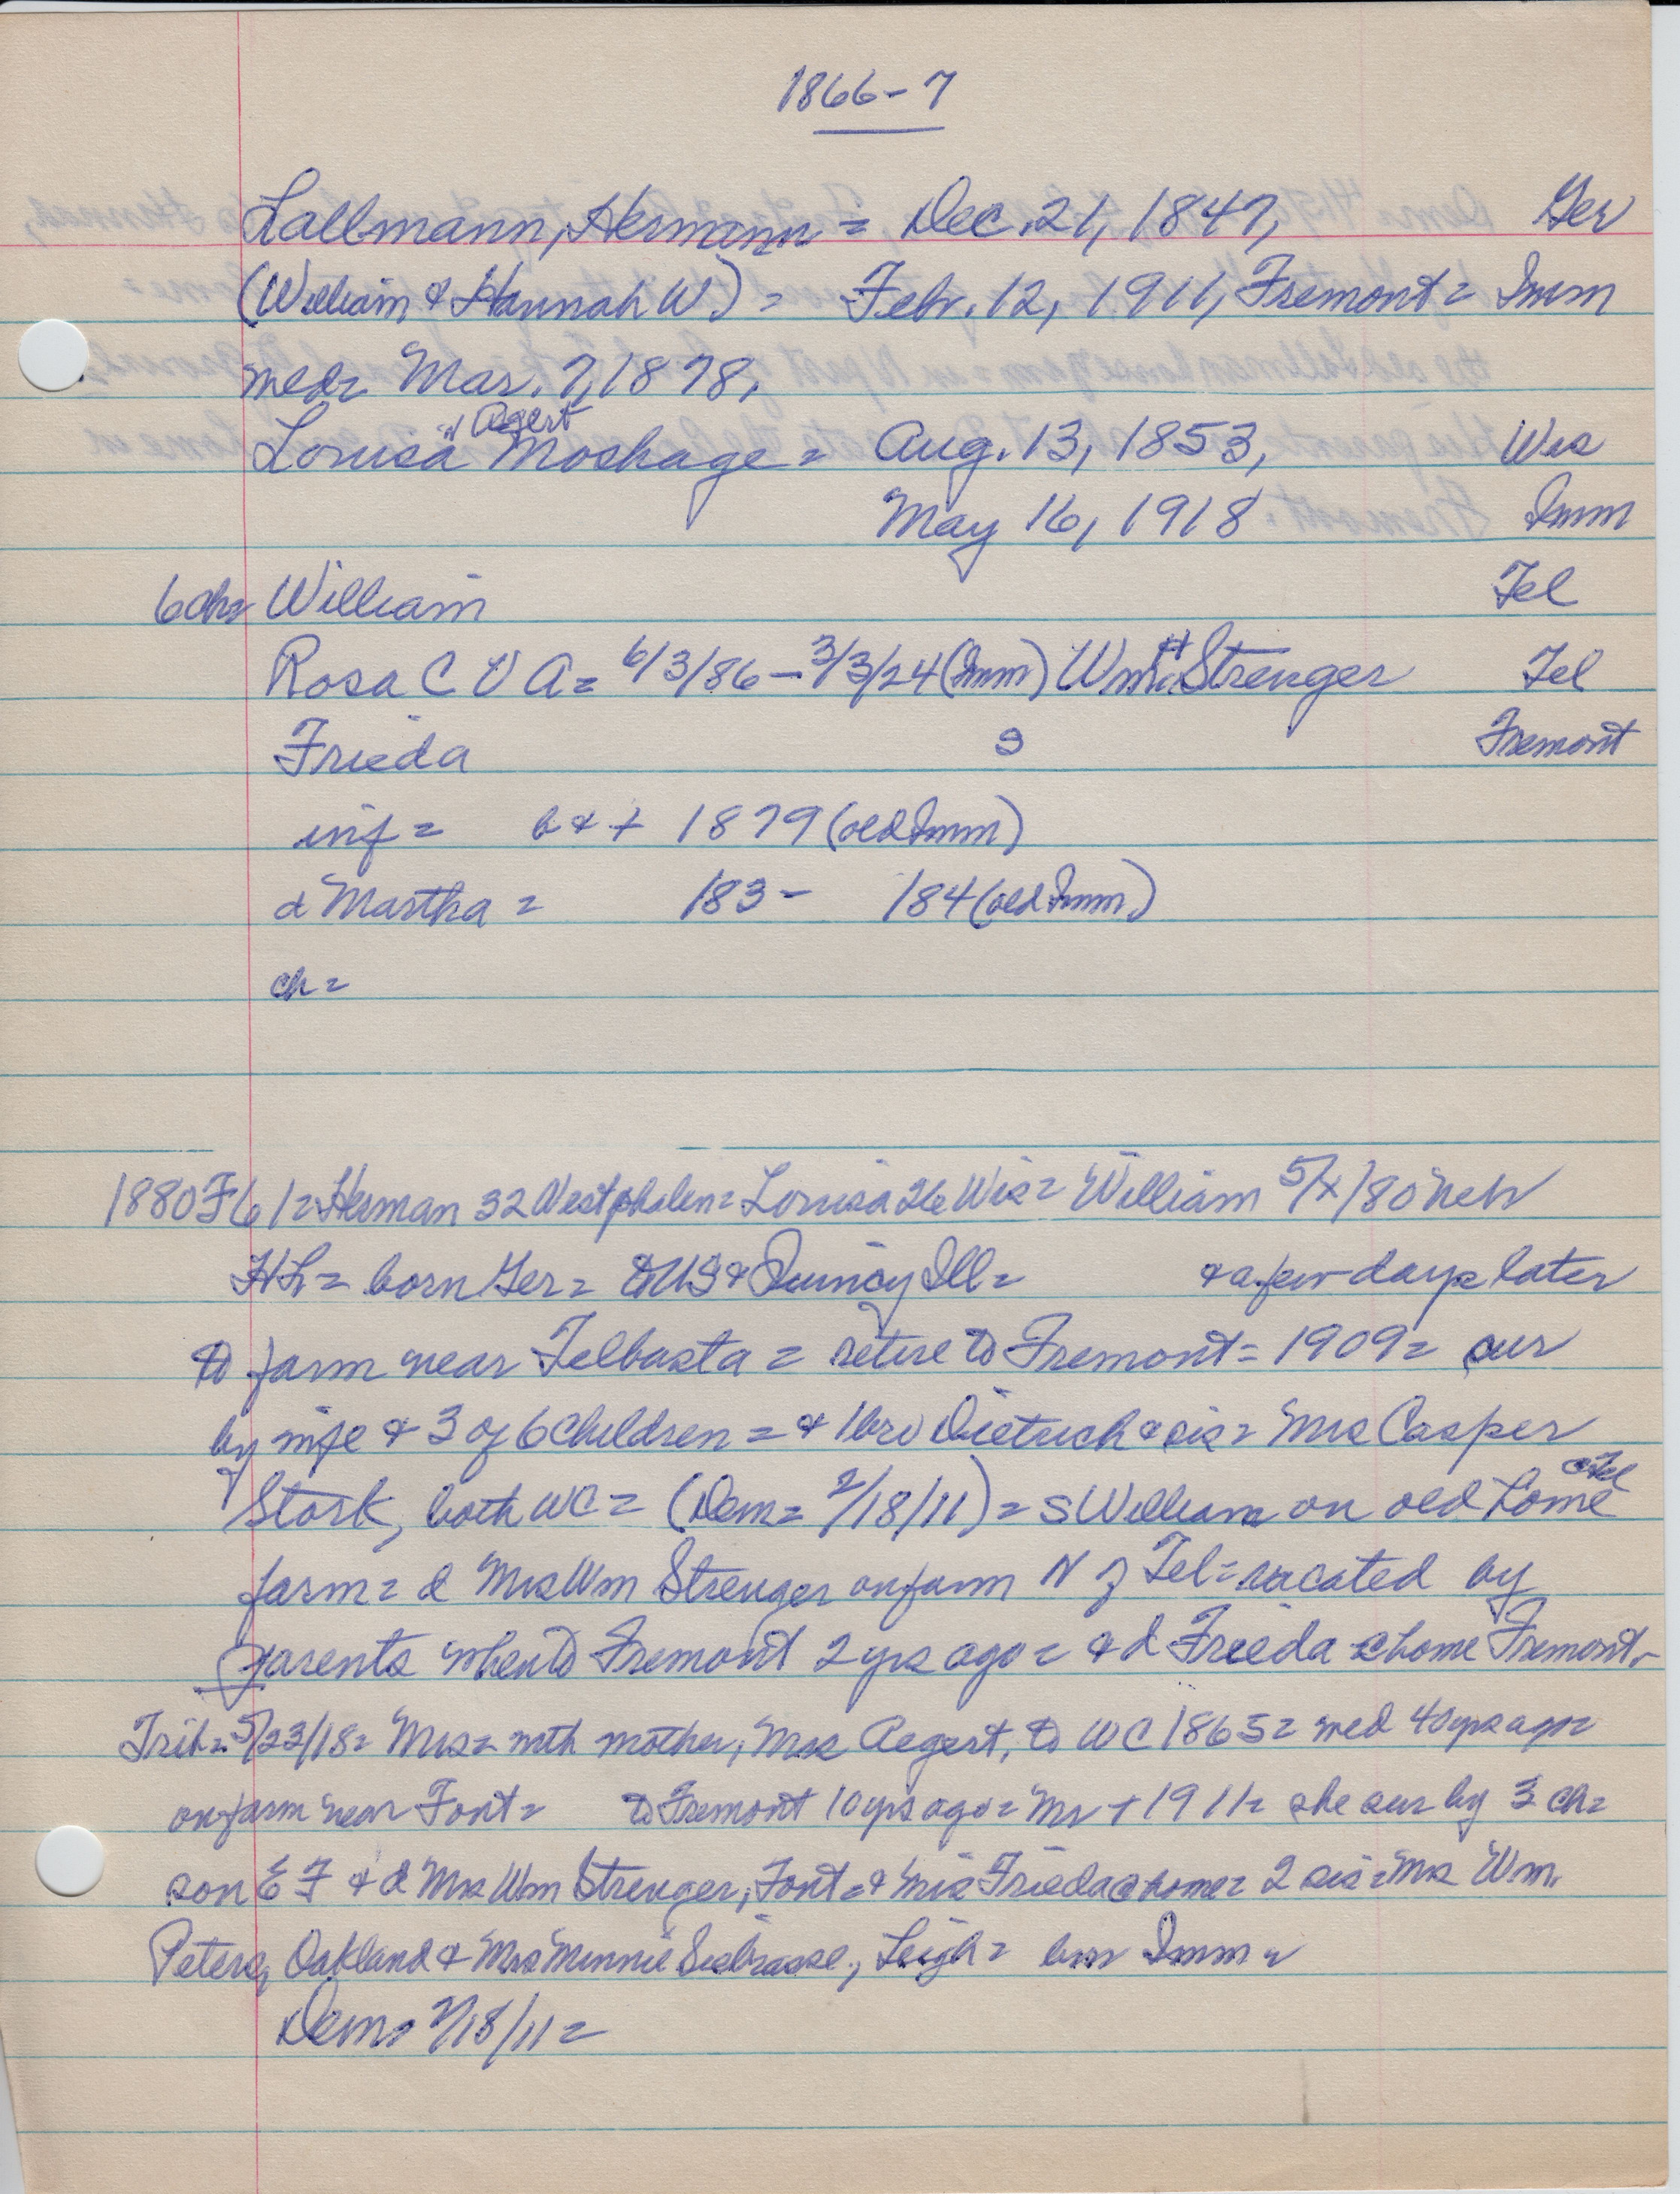 1866-7
Lallmann, Hermann = Dec. 21, 1847, Ger
(William & Hannah W) = Febr. 12, 1911, Fremont = Imm
med= Mar. 7, 1878,
" Agert
Louisa Moshage = Aug. 13, 1853, Wis
May 16, 1918 Imm
6 ch= William Tel
Rosa C V A = 6/3/86 - 3/3/24 (Imm) Wm H Strenger Tel
Frieda S Fremont
inf = b & + 1879 (old Imm)
d Martha = 183 - 184 (old Imm.)
ch =
1880 F6 1= Herman 32 Westphalen = Louisa 26 Wis = William 5/x/80 Neb
HL = born Ger = to US & Quincy Ill = & a few days later
to farm near Telbasta = retire to Fremont = 1909 = sur
by wife & 3 of 6 children = & 1 bro Dietrich & sis = Mrs Casper
Stork, both WC = (Dem = 2/18/11) = s William on old home
farm = d Mrs Wm Strenger on farm N of Tel = vacated by
parents when to Fremont 2 yrs ago = & d Frieda @ home Fremont -
Trib = 5/23/18 = Mrs = with mother, Mrs Aegert, to WC 1865 = med 40 yrs ago =
on farm near Font = to Fremont 10 yrs ago = Mr + 1911 = she sur by 3 ch =
son E F & d Mrs Wm Strenger, Font = & Miss Frieda @ home = 2 sis = Mrs Wm.
Peters, Oakland & Mrs Minnie Siebrasse, Leigh = bur Imm =
Dem = 2/18/11 =